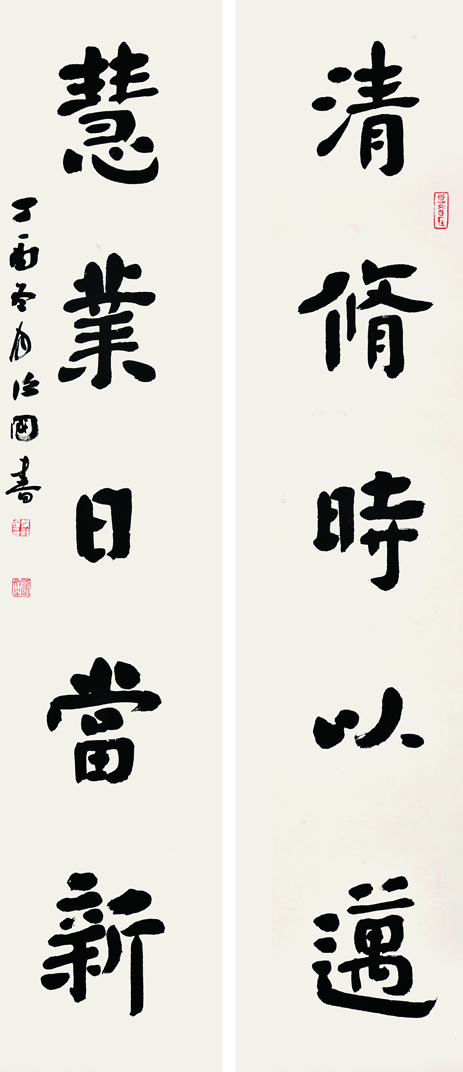 清脩時以邁
慧業日當新
丁酉冬月國書